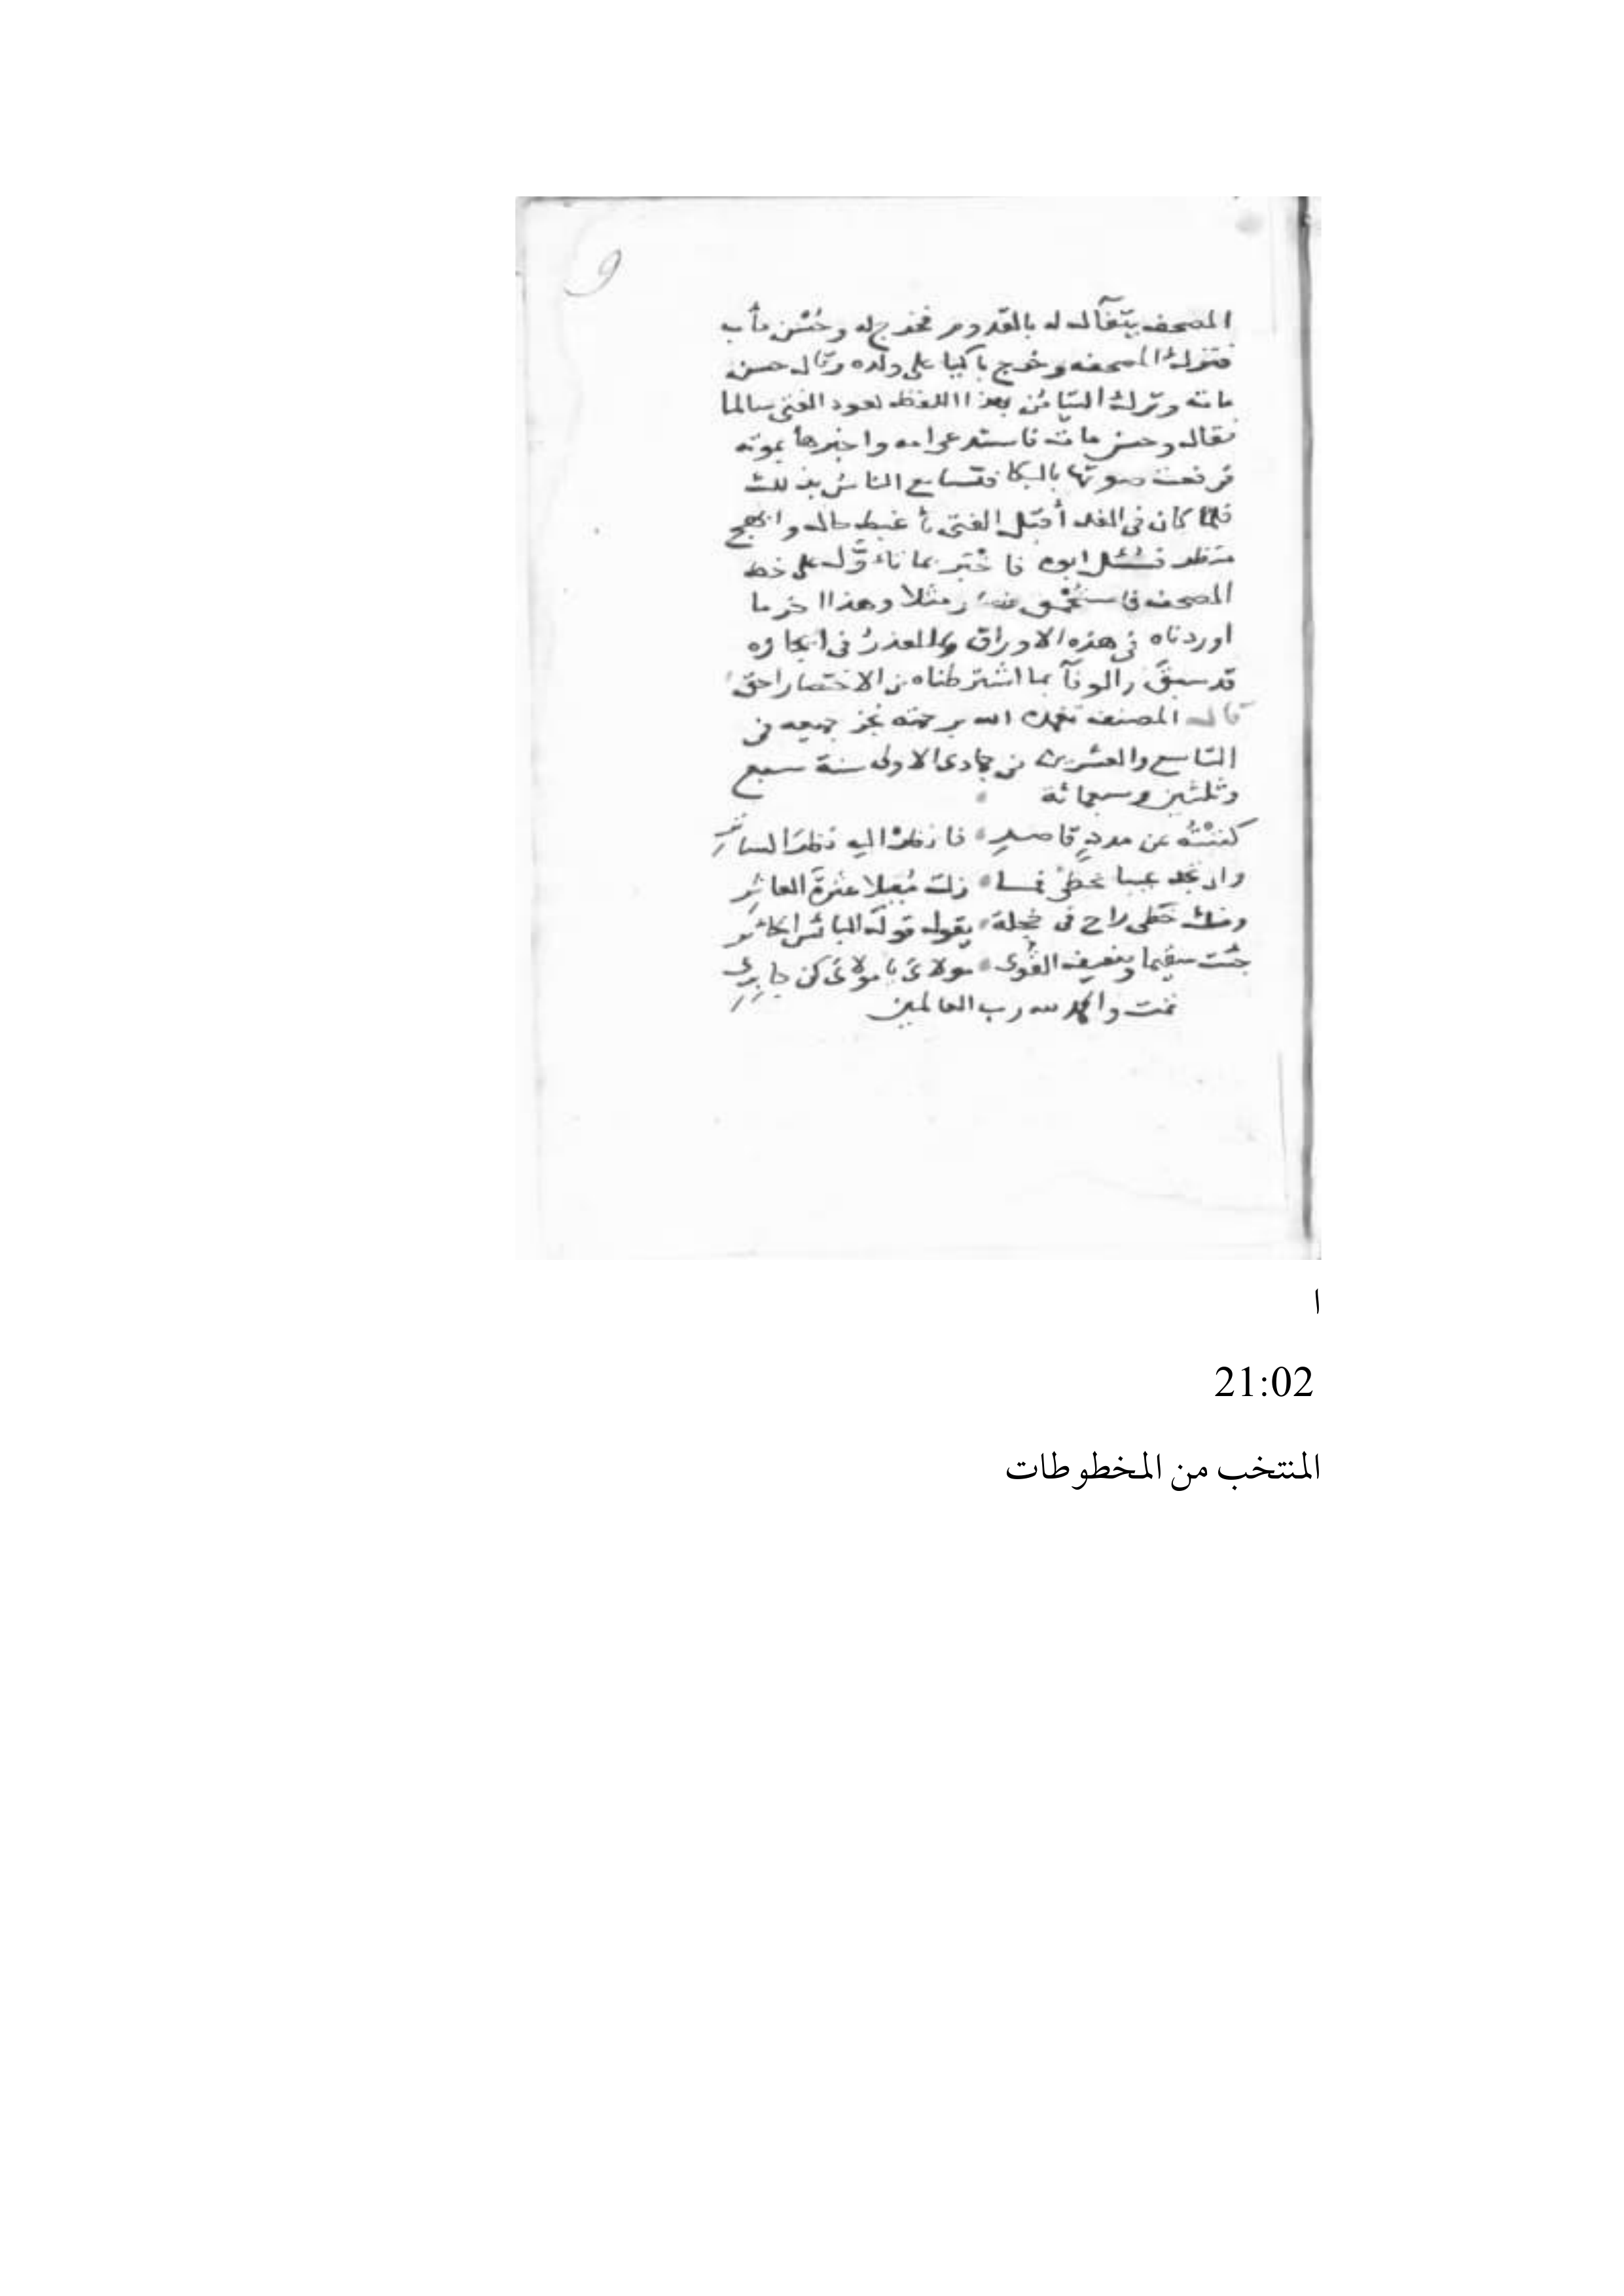 المصحف يتفآل له بالقدوم فخرج له وحُسْن مأب
فترك المصحف وخرج باكيا على ولده وقال حسن
مات وترك التيامُن بهذا اللفظ لعود الفتى سالما
فقال وحسن مات فاستدعى امه واخبرها بموته
فرفعت صوتها بالبكا فتسامع الناس بذلك
فلما كان في الغد أقبل الفتى بأغبط حال وابهج
منظر فسُئل ابوه فاخْبَر بما تأوَّله على خط
المصحف فاستُحْمِق مثلا وهذا اخر ما
اوردناه في هذه الاوراق والعذرُ في ايجازه
قد سبقَ والوفآ بما اشترطناه من الاختصار احق
قال المصنف تغمده الله برحمته نجز جميعه في
التاسع والعشرين من جمادى الاولى سنة سبع
وثلثين وسبعمائة
كتبْتُه عن مددٍ قاصدٍ فانظرْ اليه نظرَ الساترِ
وان تجد عيبا فخطى زلت مُقِيلا عثرةَ العاثرِ
ومنك خطى راح في خجلة يقول قولَ البائس الحائر
جئت سقيما وضعيف القُوى مولاىَ يا مولاىَ كن جابِرِى
تمت والحمد لله رب العالمين
ا
21:02
المنتخب من المخطوطات